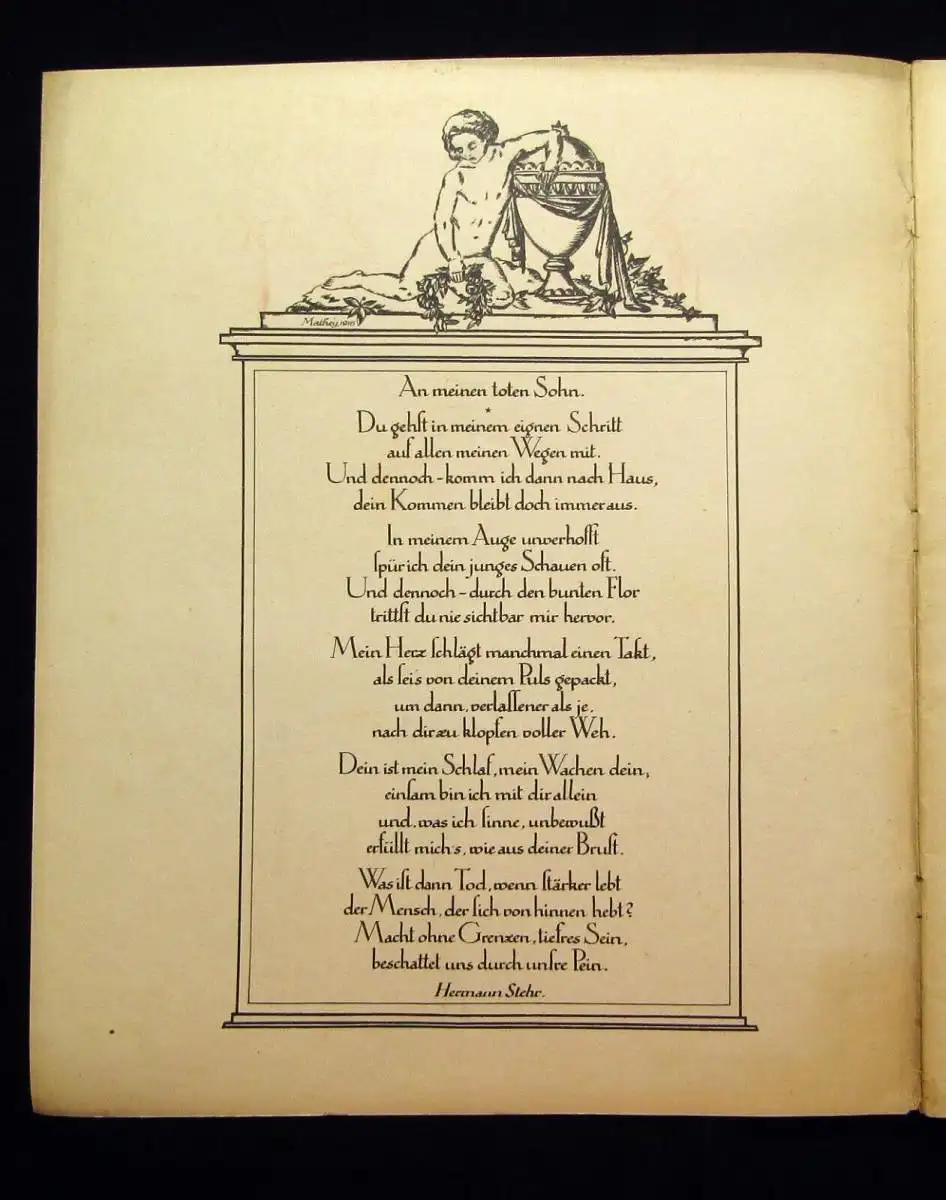 Mathey 1915
An meinen toten Sohn.
*
Du gehſt in meinem eignen Schritt
auf allen meinen Wegen mit.
Und dennoch – komm ich dann nach Haus,
dein Kommen bleibt doch immer aus.
In meinem Auge unverhofft
ſpür ich dein junges Schauen oft.
Und dennoch – durch den bunten Flor
trittſt du nie sichtbar mir hervor.
Mein Herz ſchlägt manchmal einen Takt,
als ſei's von deinem Puls gepackt,
um dann, verlaſſener als je,
nach dir zu klopfen voller Weh.
Dein ist mein Schlaf, mein Wachen dein,
einſam bin ich mit dir allein
und, was ich ſinne, unbewußt
erfüllt mich's, wie aus deiner Bruſt.
Was iſt dann Tod, wenn ſtärker lebt
der Mensch, der ſich von hinnen hebt?
Macht ohne Grenzen, tiefres Sein,
beschattet uns durch unſre Pein.
Hermann Stehr.